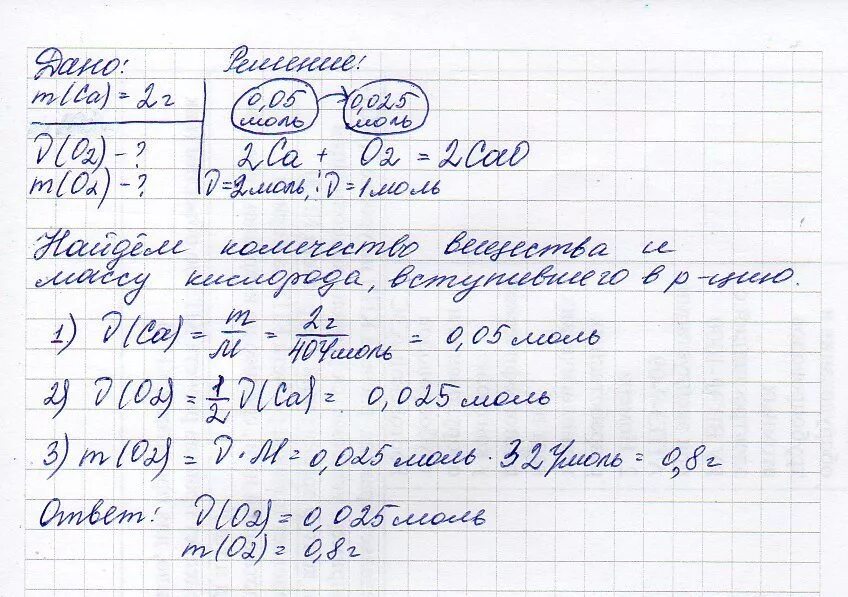 Дано:
m(Ca) = 2г
ν(O2) - ?
m(O2) - ?
Решение:
0,05 моль → 0,025 моль
2Ca + O2 = 2CaO
ν=2моль, ν=1моль
Найдём количество вещества и
массу кислорода, вступившего в р-цию.
1) ν(Ca) = m/M = 2г/40г/моль = 0,05 моль
2) ν(O2) = 1/2 ν(Ca) = 0,025 моль
3) m(O2) = ν·M = 0,025 моль · 32г/моль = 0,8г
Ответ: ν(O2) = 0,025 моль
m(O2) = 0,8г